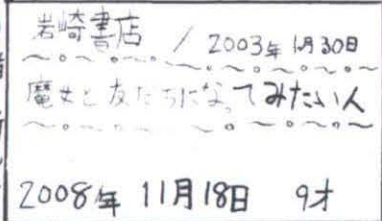 岩崎書店 / 2003年 1月30日
魔女と友だちになってみたい人
2008年 11月18日 9才